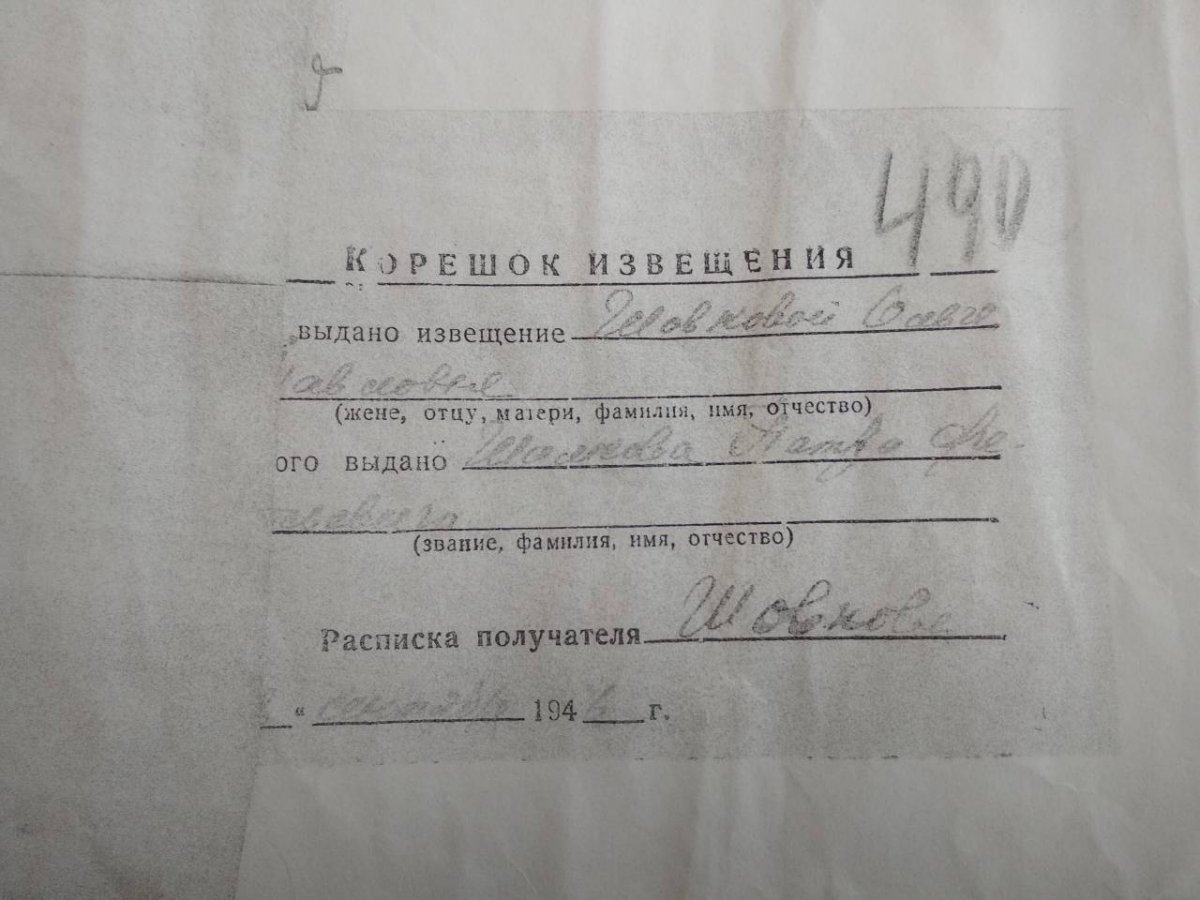 490
КОРЕШОК ИЗВЕЩЕНИЯ
выдано извещение Шовковой Ольге
Павловне
(жене, отцу, матери, фамилия, имя, отчество)
ого выдано
(звание, фамилия, имя, отчество)
Расписка получателя Шовкова
“ сентября 194 г.